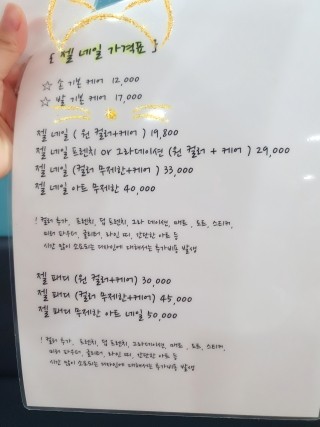 [ 젤 네일 가격표 ]
☆ 손 기본 케어 12,000
☆ 발 기본 케어 17,000
젤 네일 ( 원 컬러+케어 ) 19,800
젤 네일 프렌치 or 그라데이션 (원 컬러 + 케어 ) 29,000
젤 네일 (컬러 무제한+케어 ) 33,000
젤 네일 아트 무제한 40,000
! 컬러 추가, 프렌치, 딥 프렌치, 그라 데이션, 매트, 도트, 스티커,
미러 파우더, 글리터, 라인 띠, 간단한 아트 등
시간 많이 소요되는 디자인에 대해서는 추가비용 발생
젤 패디 (원 컬러+케어) 30,000
젤 패디 (컬러 무제한+케어) 45,000
젤 패디 무제한 아트 네일 50,000
! 컬러 추가, 프렌치, 딥 프렌치, 그라데이션, 매트, 도트, 스티커,
미러 파우더, 글리터, 라인 띠, 간단한 아트 등
시간 많이 소요되는 디자인에 대해서는 추가비용 발생